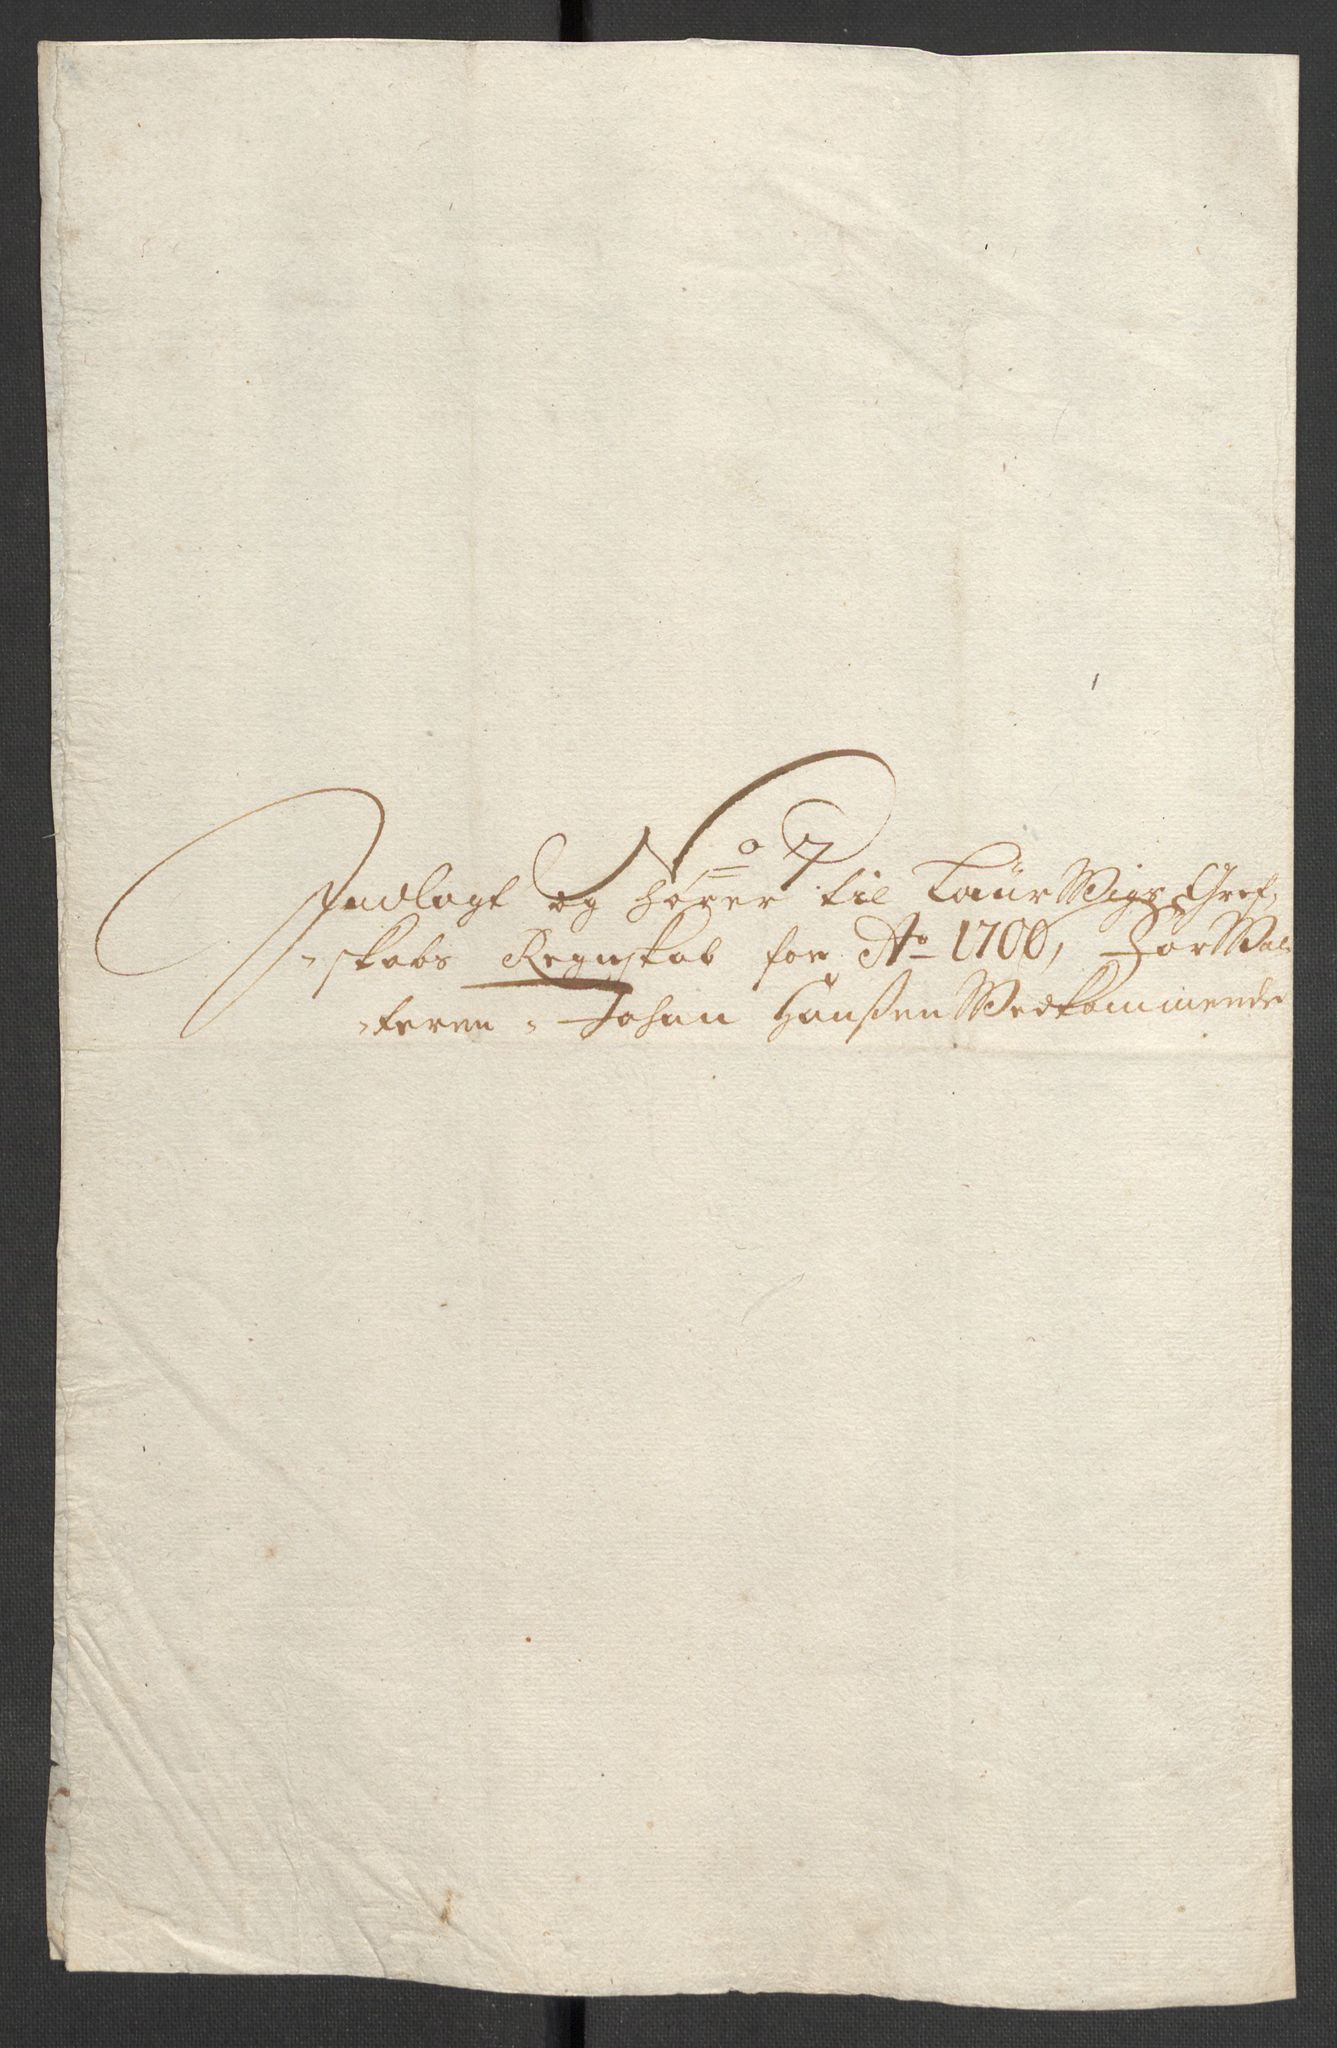 No 7
Indlagt og hører til LaurWigs Gref-
skabs Regnskab for Ao 1700,
teren Johan Hanßen Wedkommende